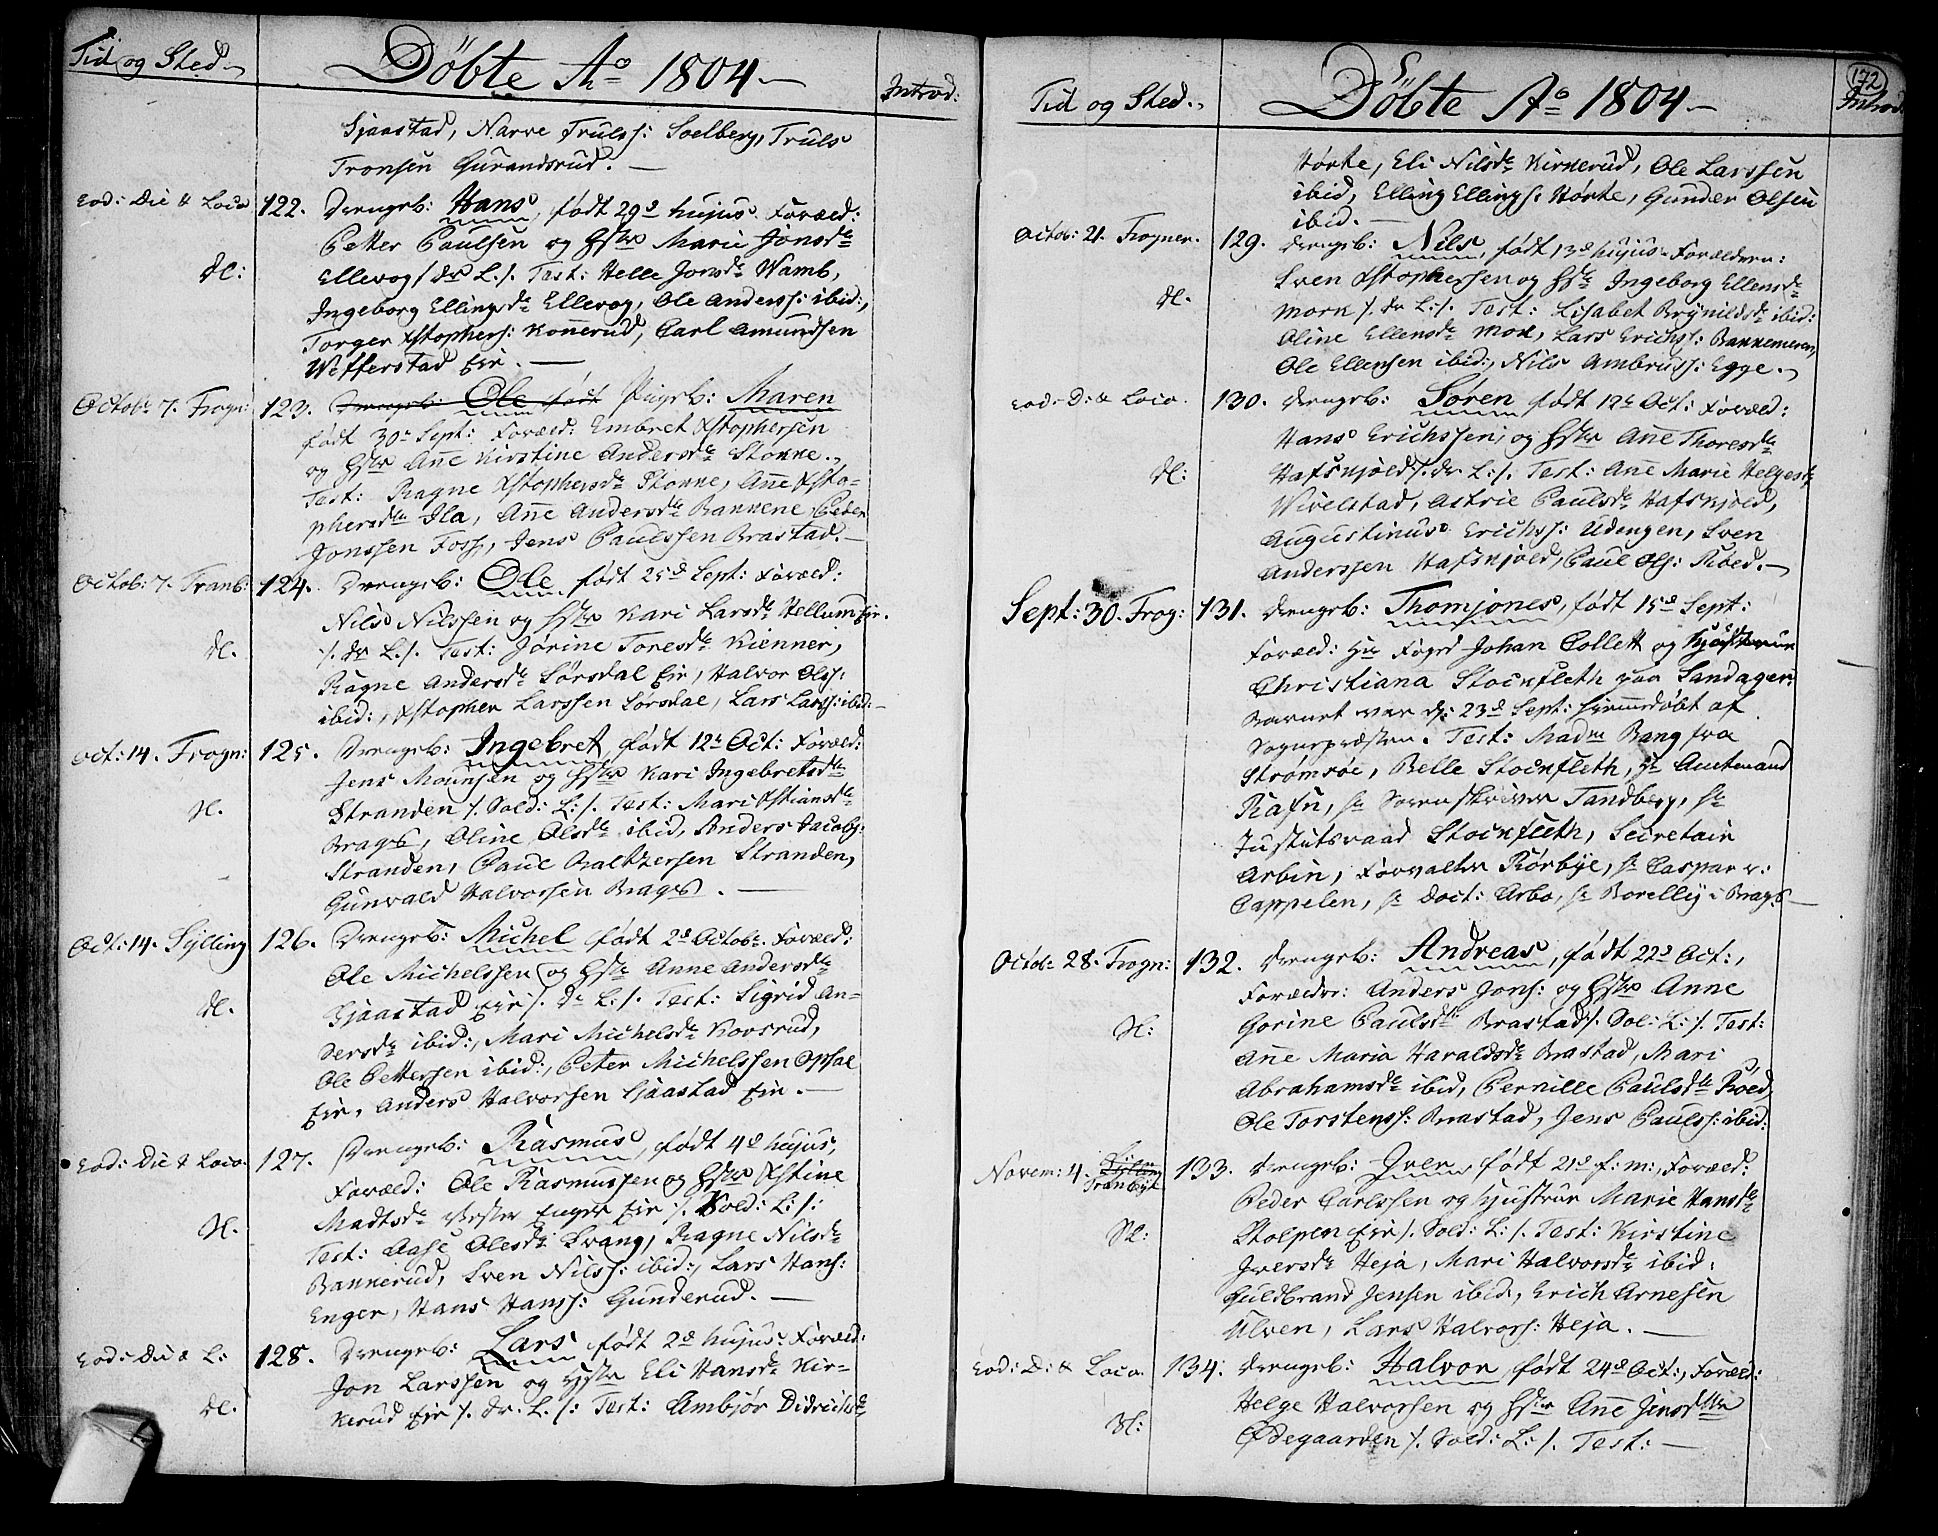 Tid og Sted
Döbte Aº 1804
Introd:
Gjaastad, Narve Trulss: Soelberg, Truls
Tronsen Gurandsrud.
Eod: Die & Loco 122. Drengeb: Hans, født 29d hujus Foræld:
Petter Paulsen og Hstr Marie Jonsdr
dl: Ellevog /: dr L:/. Test: Helle Jonsdr Wamb,
Ingeborg Ellingsdr Ellevog, Ole Anderss: ibid:,
Torger Xstophers: Konnerud, Carl Amundsen
Wefferstad Eir.
Octob: 7. Frogn: 123. Drengeb: Ole født Pigeb: Maren
født 30t Sept: Foræld: Embret Xstophersen
og Hstr Añe Kirstine Andersdr Stokke.
Test: Ragne Xstophersdr Stokke, Añe Xsto-
phersdtr Ila, Añe Andersdr Bakkene, Peder
Jonssen Foss, Jens Paulssen Brastad.
Octob: 7. Tranb: 124. Drengeb: Ole født 25d Sept: Foræld:
Nils Nilssen og Hstr Kari Larsdr Hellum Eir.
dl. /. dr L./. Test: Jörine Toresdr Kienner,
Ragne Andersdr Sørsdal Eir, Halvor Olss:
ibid:, Xstopher Larssen Sørsdal, Lars Larss: ibid:
Oct: 14. Frogn: 125. Drengeb: Ingebret, født 12t Oct: Foræld:
Jens Mounsen og Hstr Kari Ingebretsdr
Sl. Stranden /. Sold: L:/. Test: Mari Xstiansdr
Brags, Oline Olsdr ibid, Anders Jacobs:
Stranden, Paul Baltzersen Stranden,
Gunvald Halvorsen Brags.
Oct: 14. Sylling 126. Drengeb: Michel født 2d Octob: Foræld:
Ole Michelssen og Hstr Anne Andersdr
dl. Gjaastad Eir /. dr L:/. Test: Sigrid An-
dersdr ibid:, Mari Michelsdr Kovsrud,
Ole Pettersen ibid:, Peter Michelssen Opsal
Eir, Anders Halvorsen Gjaastad Eir.
Eod: Die & Loco. 127. Drengeb: Rasmus, født 4d hujus,
Foræld: Ole Rasmussen og Hstr Xstine
Sl. Madtsdr Vester Enger Eir /. Sold: L:/:
Test: Aase Olesdr Svang, Ragne Nilsdr
Bannerud, Sven Nilss: ibid:, Lars Hans:
Enger, Hans Hanss: Gunderud.
Eod: Die & L: 128. Drengeb: Lars født 2d hujus Foræld:
Jon Larssen og Hstr Eli Hansdr Kir-
dl. kerud Eir /. dr. L./: Test: Ambjør Didrichsdr
172
Tid og Sted.
Döbte Aº 1804
Introd.
Hørte, Eli Nilsdr Kirkerud, Ole Larssen
ibid, Elling Ellings: Hørte, Gunder Olsen
ibid.
Octob: 21. Frogner. 129. Drengeb: Nils, født 13d hujus Forældern:
Sven Xstophersen og Hstr Ingeborg Ellensdr
dl. Mork /. dr L:/. Test: Lisabet Brynildsdr ibid:
Oline Ellensdr Mork, Lars Erichs: Bakkemeren,
Ole Ellensen ibid:, Nils Ambruss: Egge.
Eod: D: & Loco. 130. Drengeb: Sören født 12t Oct: Foræld:
Hans Erichssen, og Hstr Añe Thoresdr
dl: Hafskjold /. dr L:/. Test: Añe Marie Helgesdr
Wivelstad, Astrie Paulsdr Hafskjold,
Augustinus Erichss: Udengen, Sven
Anderssen Hafskjold, Paul Ols: Roed.
Sept: 30. Frog: 131. Drengeb: Thomjones, født 15d Sept:
Foræld: Hr Foged Johan Collett og Hustrue
Christiana Stockfleth paa Sandager.
Barnet var d: 23d Sept: hiemmedøbt af
Sognepræsten. Test: Madm Bang fra
Strømsøe, Belle Stockfleth, Hr Amtmand
Rafn, Hr Sorenskriver Tandberg, Hr
Justitsraad Stockfleth, Secretair
Arbin, Forvalter Rörbye, Hr Caspar v:
Cappelen, Hr Doct: Arbo, Hr Borelly i Brags
Octob: 28. Frogn: 132. Drengeb: Andreas, født 22d Oct:,
Forældr: Anders Jons: og Hstr Anne
Sl: Gorine Paulsdr Brastad /. Sol: L:/. Test:
Añe Maria Haraldsdr Brastad, Mari
Abrahamsdr ibid, Pernille Paulsdtr Roed,
Ole Torstenss: Brastad, Jens Paulss: ibid:
Novem: 4. Sylling Tranbye 133. Drengeb: Iver, født 21d f: m:, Foræld:
Peder Carlssen og Hustrue Marie Hansdr
Sl: Stolpen Eir /. Sold: L:/. Test: Kirstine
Iversdr Heja, Mari Halvorsdr ibid:
Guldbrand Jensen ibid:, Erich Arnesen
Ulven, Lars Halvors: Heja.
Eod: D: & Loco. 134. Drengeb: Halvor, født 24d Oct:, Foræld:
Helge Halvorsen og Hstr Añe Jensdtr
Sl: Ødegaarden /. Sold: L:/. Test: